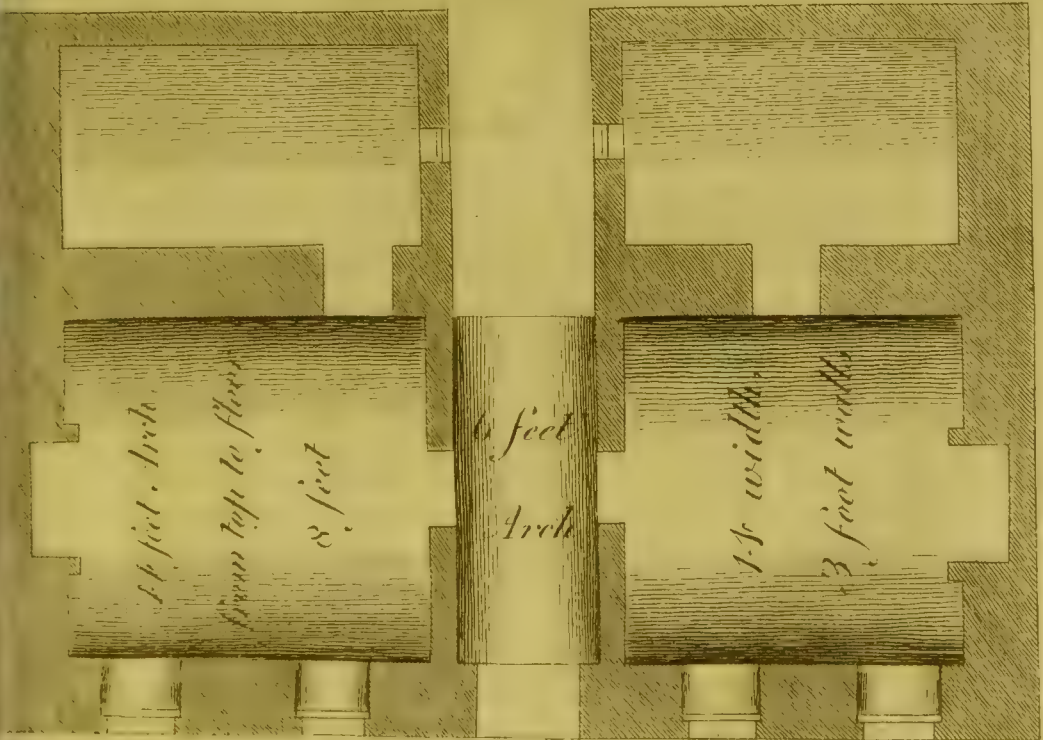 14 feet. Arch.
from top to floor
8 feet
6 feet
Arch
14 width.
3 feet walls,